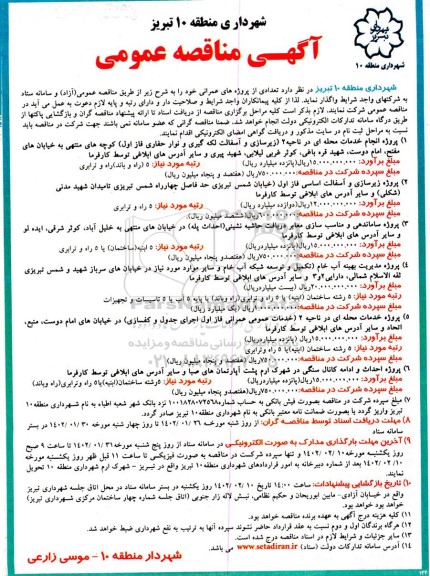 شهرداری منطقه ۱۰ تبریز
آگهی مناقصه عمومی
شهرداری منطقه ۱۰
شهرداری منطقه ۱۰ تبریز در نظر دارد تعدادی از پروژه های عمرانی خود را به شرح زیر از طریق مناقصه عمومی(آزاد) و سامانه ستاد
به شرکتهای واجد شرایط واگذار نماید. لذا از کلیه پیمانکاران واجد شرایط و صلاحیت دار و دارای رتبه و پایه لازم دعوت به عمل می آید در
مناقصه شرکت نمایند. لازم بذکر است کلیه مراحل برگزاری مناقصه از دریافت اسناد تا ارائه پیشنهاد مناقصه گران و بازگشایی پاکتها از
طریق درگاه سامانه تدارکات الکترونیکی دولت انجام خواهد شد. ضمنا مناقصه گرانی که عضو سامانه نمی باشند جهت شرکت در مناقصه باید
نسبت به مراحل ثبت نام در سایت مذکور و دریافت گواهی امضای الکترونیکی اقدام نمایند.
۱) پروژه انجام خدمات محله ای در ناحیه۲ (زیرسازی و آسفالت لکه گیری و نوار حفاری فاز اول) کوچه های منتهی به خیابان های
مفتح، امام دوست، شهید قره باغی، کوثر غربی لیلابی، شهید پیری و سایر آدرس های ابلاغی توسط کارفرما
مبلغ برآورد: ۱۵.۰۰۰.۰۰۰.۰۰۰ریال(پانزده میلیارد ریال) رتبه مورد نیاز: ۵ (راه و باند)راه و ترابری
مبلغ سپرده شرکت در مناقصه:۷۵۰.۰۰۰.۰۰۰ریال (هفتصد و پنجاه میلیون ریال)
۲) پروژه زیرسازی و آسفالت اساسی فاز اول (خیابان شمس تبریزی حد فاصل چهارراه شمس تبریزی تامیدان شهید مدنی
(شکلی) و سایر آدرس های ابلاغی توسط کارفرما
مبلغ برآورد: ۱۲.۰۰۰.۰۰۰.۰۰۰ریال(دوازده میلیارد ریال) رتبه مورد نیاز: ۵ راه و ترابری
مبلغ سپرده شرکت در مناقصه:۶۰۰.۰۰۰.۰۰۰ریال(ششصد میلیون ریال).
۳) پروژه ساماندهی و مناسب سازی معابر دریافت حاشیه نشینی(احداث پله) در خیابان های منتهی به خلیل آباد، کوثر شرقی، ایده لو
و سایر آدرس های ابلاغی توسط کارفرما
مبلغ برآورد: ۱۵.۰۰۰.۰۰۰.۰۰۰ریال(پانزده میلیاردریال) رتبه مورد نیاز: ۵ ابنیه(ساختمان) یا ۵ راه و ترابری
مبلغ سپرده شرکت در مناقصه:۷۵۰.۰۰۰.۰۰۰ریال (هفتصدو پنجاه میلیون ریال)
۴) پروژه مدیریت بهینه آب خام (تکمیل و توسعه شبکه آب خام و سایر موارد مورد نیاز در خیابان های سرباز شهید و شمس تبریزی
ثقه الاسلام شمالی، دارایی۲و۳ و سایر آدرس های ابلاغی توسط کارفرما
مبلغ برآورد: ۲۰.۰۰۰.۰۰۰.۰۰۰ریال (بیست میلیاردریال)
رتبه مورد نیاز: ۵ رشته ساختمان (ابنیه) یا ۵ راه و ترابری(راه وباند) یا پایه ۵ آب یا ۵ تاسیسات و تجهیزات
مبلغ سپرده شرکت در مناقصه: ریال (یک میلیارد ریال)
۵) پروژه خدمات محله ای در ناحیه ۲ (خدمات عمومی عمرانی فاز اول اجرای جدول و کفسازی) در خیابان های امام دوست، منبع،
اتحاد و سایر آدرس های ابلاغی توسط کارفرما
مبلغ برآورد: ۱۵.۰۰۰.۰۰۰.۰۰۰ریال (پانزده میلیاردریال)
رتبه مورد نیاز: ۵ رشته ساختمان (ابنیه)یا ۵ راه وترابری
مبلغ سپرده شرکت در مناقصه: ۷۵۰.۰۰۰.۰۰۰ریال(هفتصدو پنجاه میلیون ریال)
۶) پروژه احداث و ادامه کانال سنگی در شهرک ارم پشت آپارتمان های صبا و سایر آدرس های ابلاغی توسط کارفرما
مبلغ برآورد: ۱۵.۰۰۰.۰۰۰.۰۰۰ریال (پانزده میلیاردریال) رتبه مورد نیاز: ۵رشته ساختمان(ابنیه)یا ۵ راه وترابری(راه وباند)
مبلغ سپرده شرکت در مناقصه:۷۵۰.۰۰۰.۰۰۰ریال(هفتصدو پنجاه میلیون ریال)
۷) مبلغ سپرده شرکت در مناقصه بصورت فیش بانکی به حساب شماره نزد بانک شهر شعبه اطباء به نام شهرداری منطقه۱۰
تبریز واریز گردد یا بصورت ضمانت نامه معتبر بانکی به نام شهرداری منطقه۱۰ تبریز صادر گردد.
۸) مهلت دریافت اسناد توسط مناقصه گران: از روز شنبه مورخه ۱۴۰۲/۰۱/۲۶ تا روز چهار شنبه مورخه ۱۴۰۲/۰۱/۳۰ در بستر
سامانه ستاد
۹) آخرین مهلت بارگذاری مدارک به صورت الکترونیکی در سامانه ستاد از روز پنج شنبه مورخه۱۴۰۲/۰۱/۳۱ تا ساعت ۹ صبح
روز یکشنبه مورخه ۱۴۰۲/۰۲/۱۰ و تنها سپرده شرکت در مناقصه به صورت فیزیکی تا ساعت ۱۱ قبل ظهر روز یکشنبه مورخه
۱۴۰۲/۰۲/۱۰ بعد از شماره دبیرخانه به امور قراردادهای شهرداری منطقه۱۰ تبریز واقع در تبریز - شهرک ارم شهرداری منطقه ۱۰ تحویل
نمایند.
۱۰) تاریخ بازگشایی پیشنهادات: ساعت ۱۴:۰۰ تاریخ ۱۴۰۲/۰۲/۱۰ روز یکشنبه در بستر سامانه ستاد در محل اتاق جلسه شهرداری تبریز
واقع در خیابان آزادی- مابین ابوریحان و حکیم نظامی، نبش لاله زار جنوبی (اتاق جلسه شماره چهار ساختمان مرکزی شهرداری تبریز)
خواهد بود خواهد بود.
۱۱) کلیه هزینه درج آگهی به عهده برنده مناقصه خواهد بود.
۱۲) هرگاه برندگان اول و دوم نسبت به عقد قرارداد حاضر نشوند سپرده آنها به ترتیب به نفع شهرداری ضبط خواهد شد.
۱۳) سایر جزئیات و شرایط لازم در اسناد مناقصه درج شده است.
۱۴) آدرس سامانه تدارکات دولت (ستاد) www.setadiran.ir می باشد.
شهردار منطقه ۱۰ - موسی زارعی